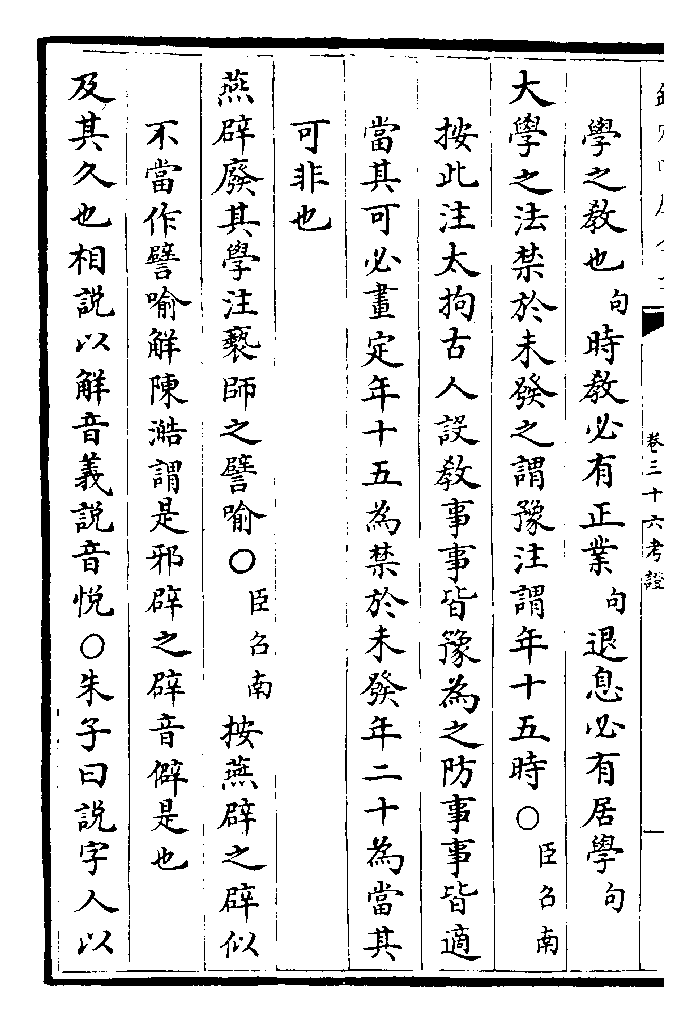 學之教也句時教必有正業句退息必有居學句
大學之法禁於未發之謂豫注謂年十五時○臣召南
按此注太拘古人設教事事皆豫為之防事事皆適
當其可必畫定年十五為禁於未發年二十為當其
可非也
燕辟廢其學注褻師之譬喻○臣召南按燕辟之辟似
不當作譬喻解陳澔謂是邪辟之辟音僻是也
及其久也相説以解音義説音悅○朱子曰説字人以
卷三十六考證